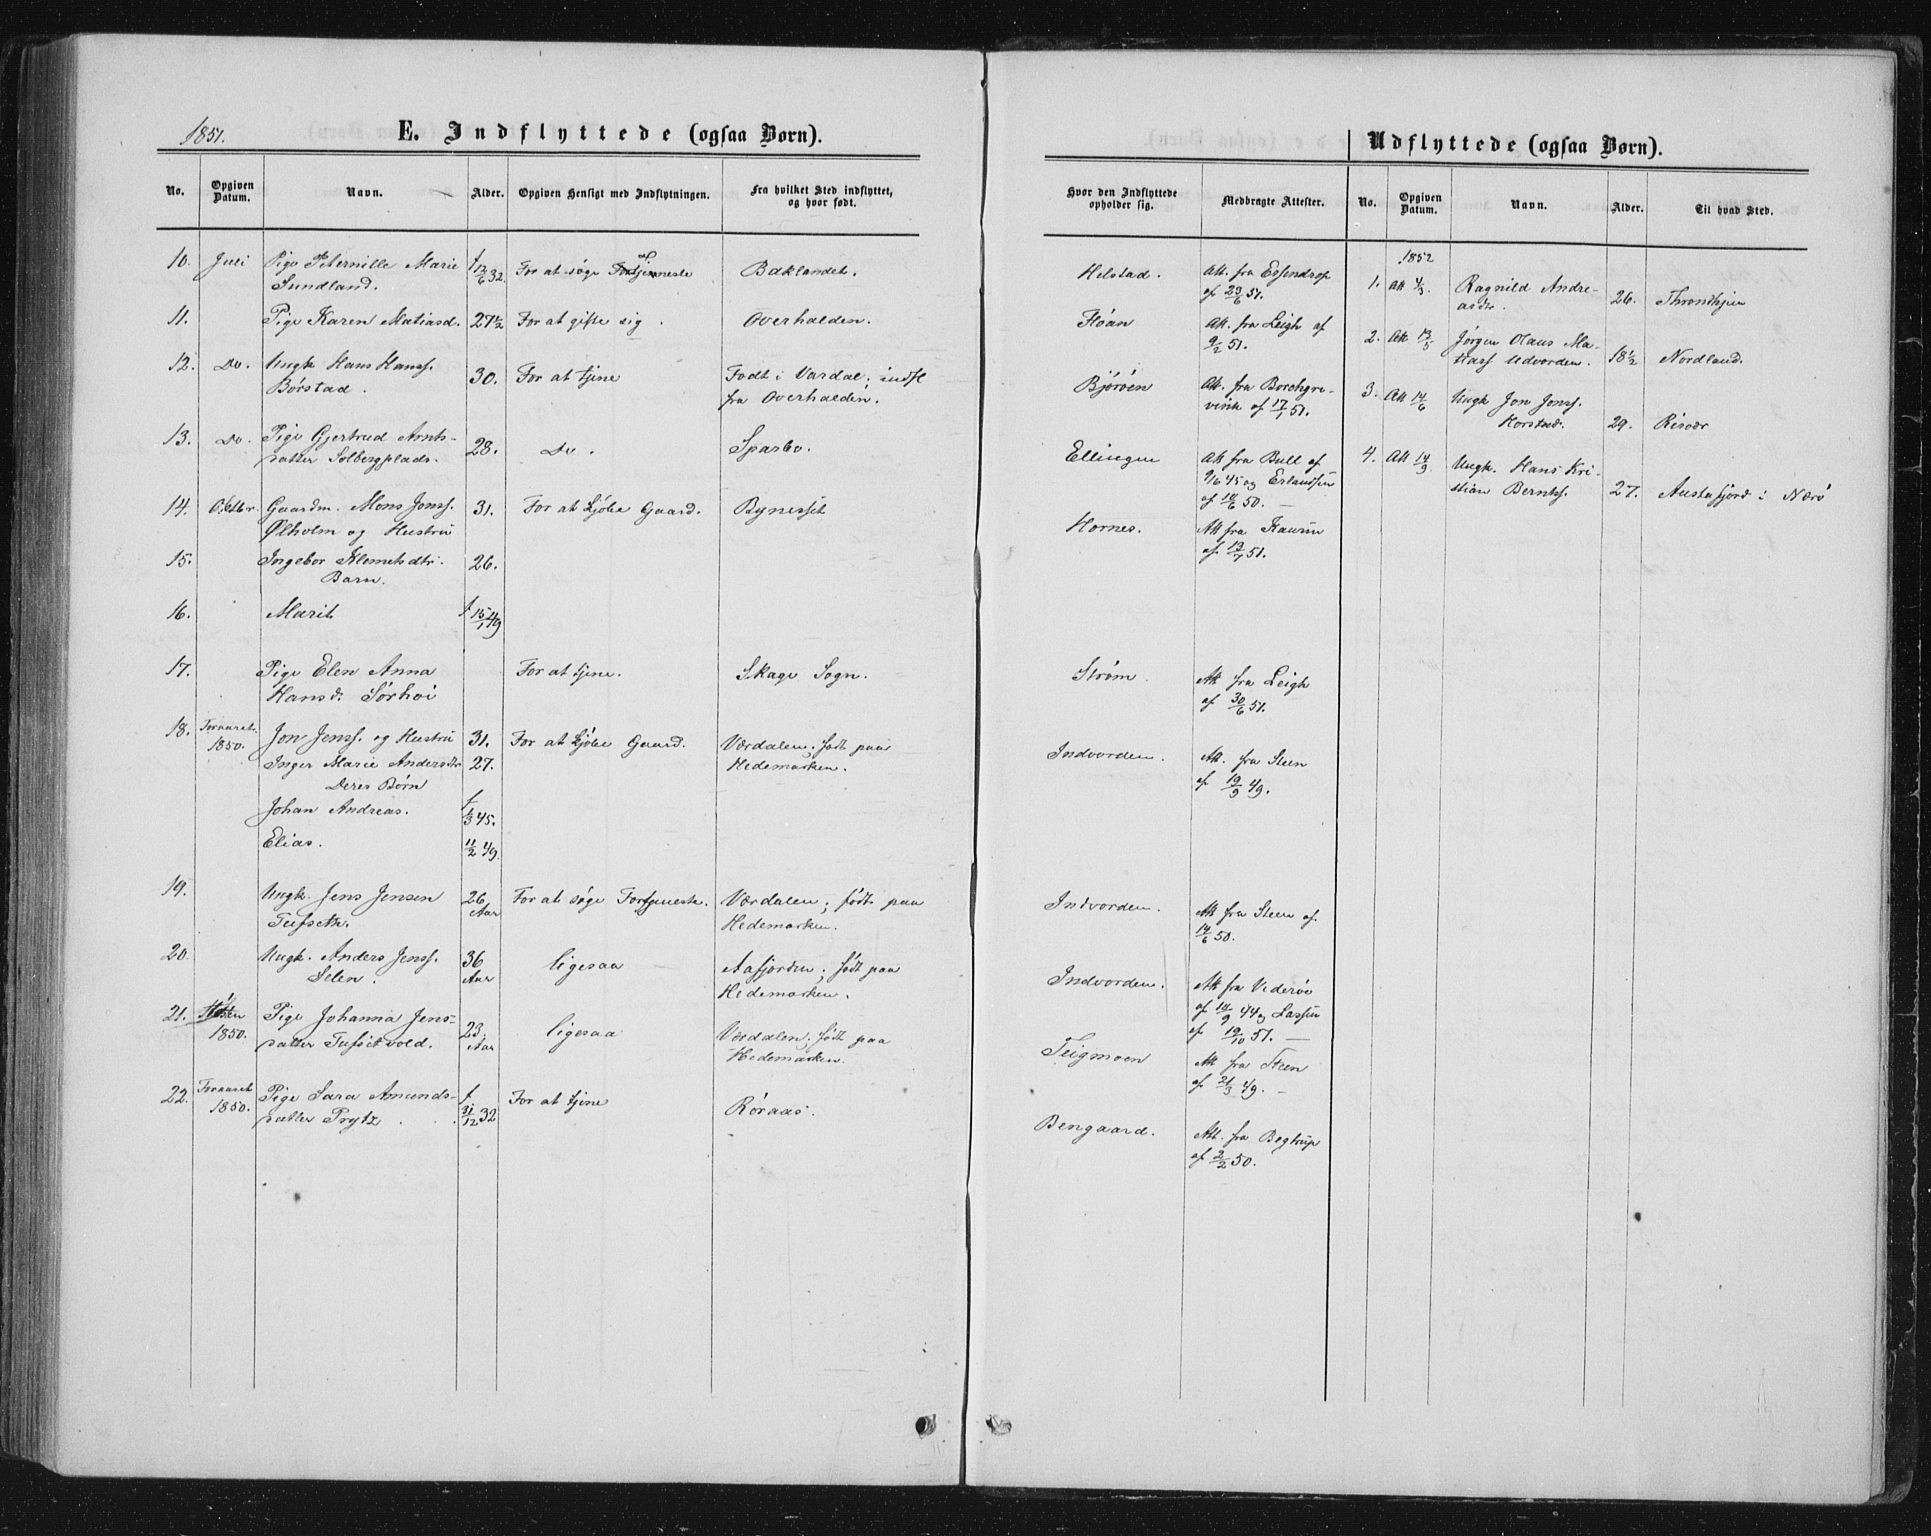 1851.
E. Indflyttede (ogsaa Børn).
No.
Opgiven Datum.
Navn.
Alder.
Opgiven Hensigt med Indflytningen.
Fra hvilket Sted indflyttet, og hvor født.
10. Juli Pige Peternille Marie f 12/6 32. For at søge Tjeneste Baklandet.
Sundland.
11. Pige Karen Matiasd. 27½ For at gifte sig. Overhalden.
12. Do. Ungk Hans Hanss. 30. For at tjene Født i Vardal; indfl
Børstad. fra Overhalden.
13. Do. Pige Gjertrud Arnts- 28. Do. Sparbo.
datter Solbergplads.
14. Oktbr. Gaardm. Mons Jonss. 31. For at kjøbe Gaard. Bynesset
Ølholm og Hustru
15. Ingebor Klemetsdtr. 26.
Barn.
16. Marit f 15/1 49
17. Pige Elen Anna For at tjene. Skage Sogn.
Hansd. Sørhøi
18. Foraaret Jon Jenss. og Hustru 31. For at kjøbe Gaard. Værdalen; født paa
1850. Inger Marie Andersdtr 27. Hedemarken.
Deres Børn
Johan Andreas. f 1/3 45.
Elias. 11/2 49.
19. Ungk. Jens Jensen 26 Aar For at søge Fortjeneste. Værdalen; født paa
Tufseth. Hedemarken.
20. Ungk. Anders Jenss. 36 Aar ligesaa Aafjorden; født paa
Selen. Hedemarken.
21. Høsten Pige Johanna Jens- 23. Aar ligesaa Værdalen; født paa
1850. datter Tufsetvold. Hedemarken.
22. Foraaret Pige Sara Amunds- f 31/12 32 For at tjene Røraas.
1850. datter Prytz
Hvor den Indflyttede opholder sig.
Medbragte Attester.
Helstad. Att. fra Essendrop
af 23/6 51.
Fløan Att. fra Leigh af
9/2 51.
Bjørøen Att. fra Borchgre-
vink af 17/1 51.
Ellingen Att fra Bull af
45 og Erlandsen
af 14/6 50. —
Hornes. Att fra Kaurin
af 13/7 51.
Strøm. Att fra Leigh
af 30/6 51.
Indvorden. Att. fra Steen
af 19/9 49.
Indvorden. Att fra Steen af
14/6 50.
Indvorden. Att fra Viderøe
af 14/9 44 og Lassen
af 19/10 51. —
Teigmoen Att fra Steen
af 21/3 49. —
Bengaard. Att. fra Begtrup
af 2/2 50.
Udflyttede (ogsaa Børn).
No.
Opgiven Datum.
Navn.
Alder.
Til hvad Sted.
1852
1. Att 4/3. Ragnild Andre- 26. Throndhjem
asdtr.
2. Att 13/5 Jørgen Olaus Ma- 18½ Nordland.
tiass Udvorden.
3. Att 14/6 Ungk Jon Jonss. 29. Risvær
Horstad.
4. Att 14/9 Ungk. Hans Kri- 27. Austafjord i Nærø
stian Berntss.